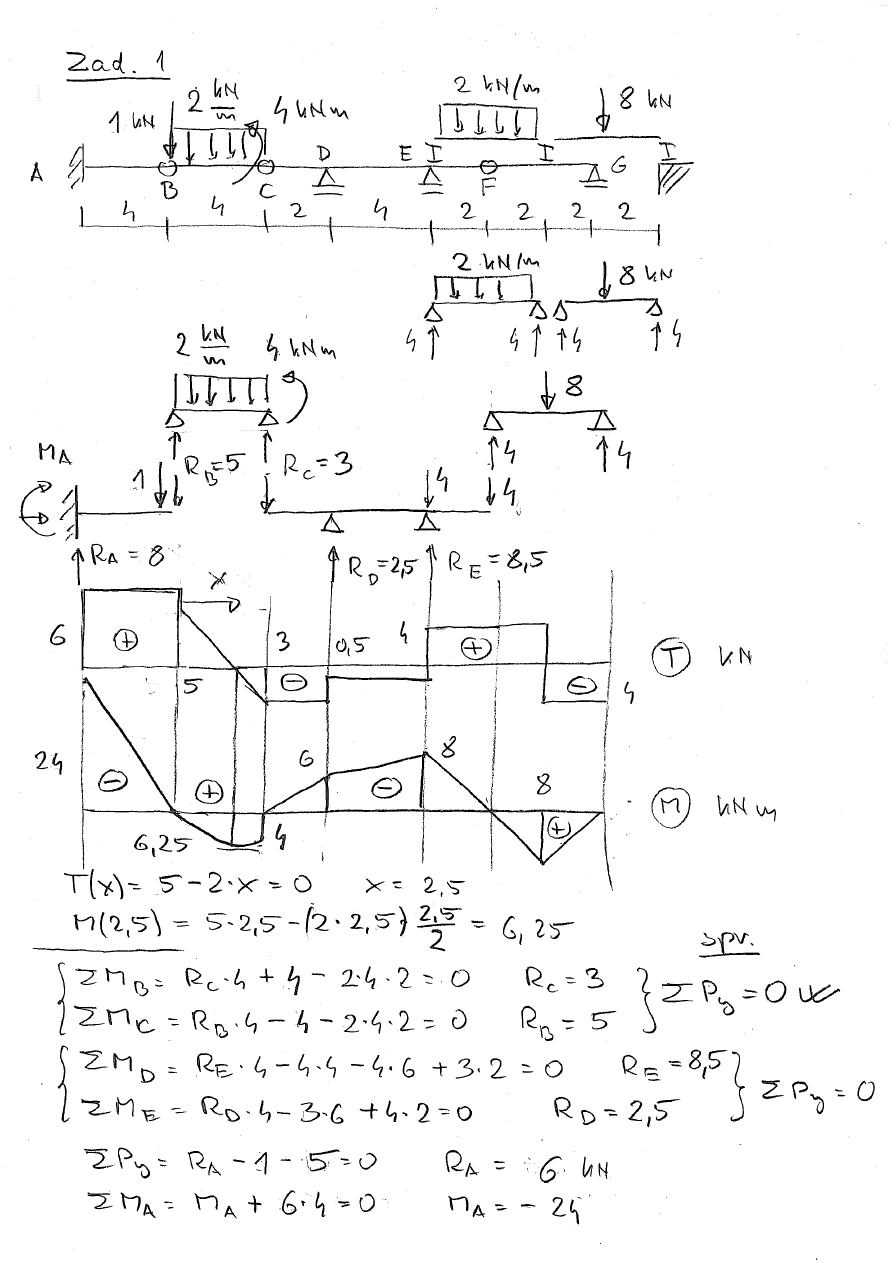 Zad. 1
1 kN 2 kN/m 4 kNm 2 kN/m 8 kN
A B C D E I F I G I
4 4 2 4 2 2 2 2
2 kN/m 8 kN
4 4 4 4
2 kN/m 4 kNm 8
MA 1 RB=5 RC=3 4 4 4 4
RA = 8 RD=2,5 RE=8,5
x
6 + 5 3 − 0,5 4 + − 4 T kN
24 − + 6,25 4 6 − 8 8 + M kNm
T(x) = 5 − 2·x = 0 x = 2,5
M(2,5) = 5·2,5 − (2·2,5) 2,5/2 = 6,25
spr.
ΣMB = RC·4 + 4 − 2·4·2 = 0 RC = 3
ΣMC = RB·4 − 4 − 2·4·2 = 0 RB = 5 } ΣPy = 0
ΣMD = RE·4 − 4·4 − 4·6 + 3·2 = 0 RE = 8,5
ΣME = RD·4 − 3·6 + 4·2 = 0 RD = 2,5 } ΣPy = 0
ΣPy = RA − 1 − 5 = 0 RA = 6 kN
ΣMA = MA + 6·4 = 0 MA = − 24